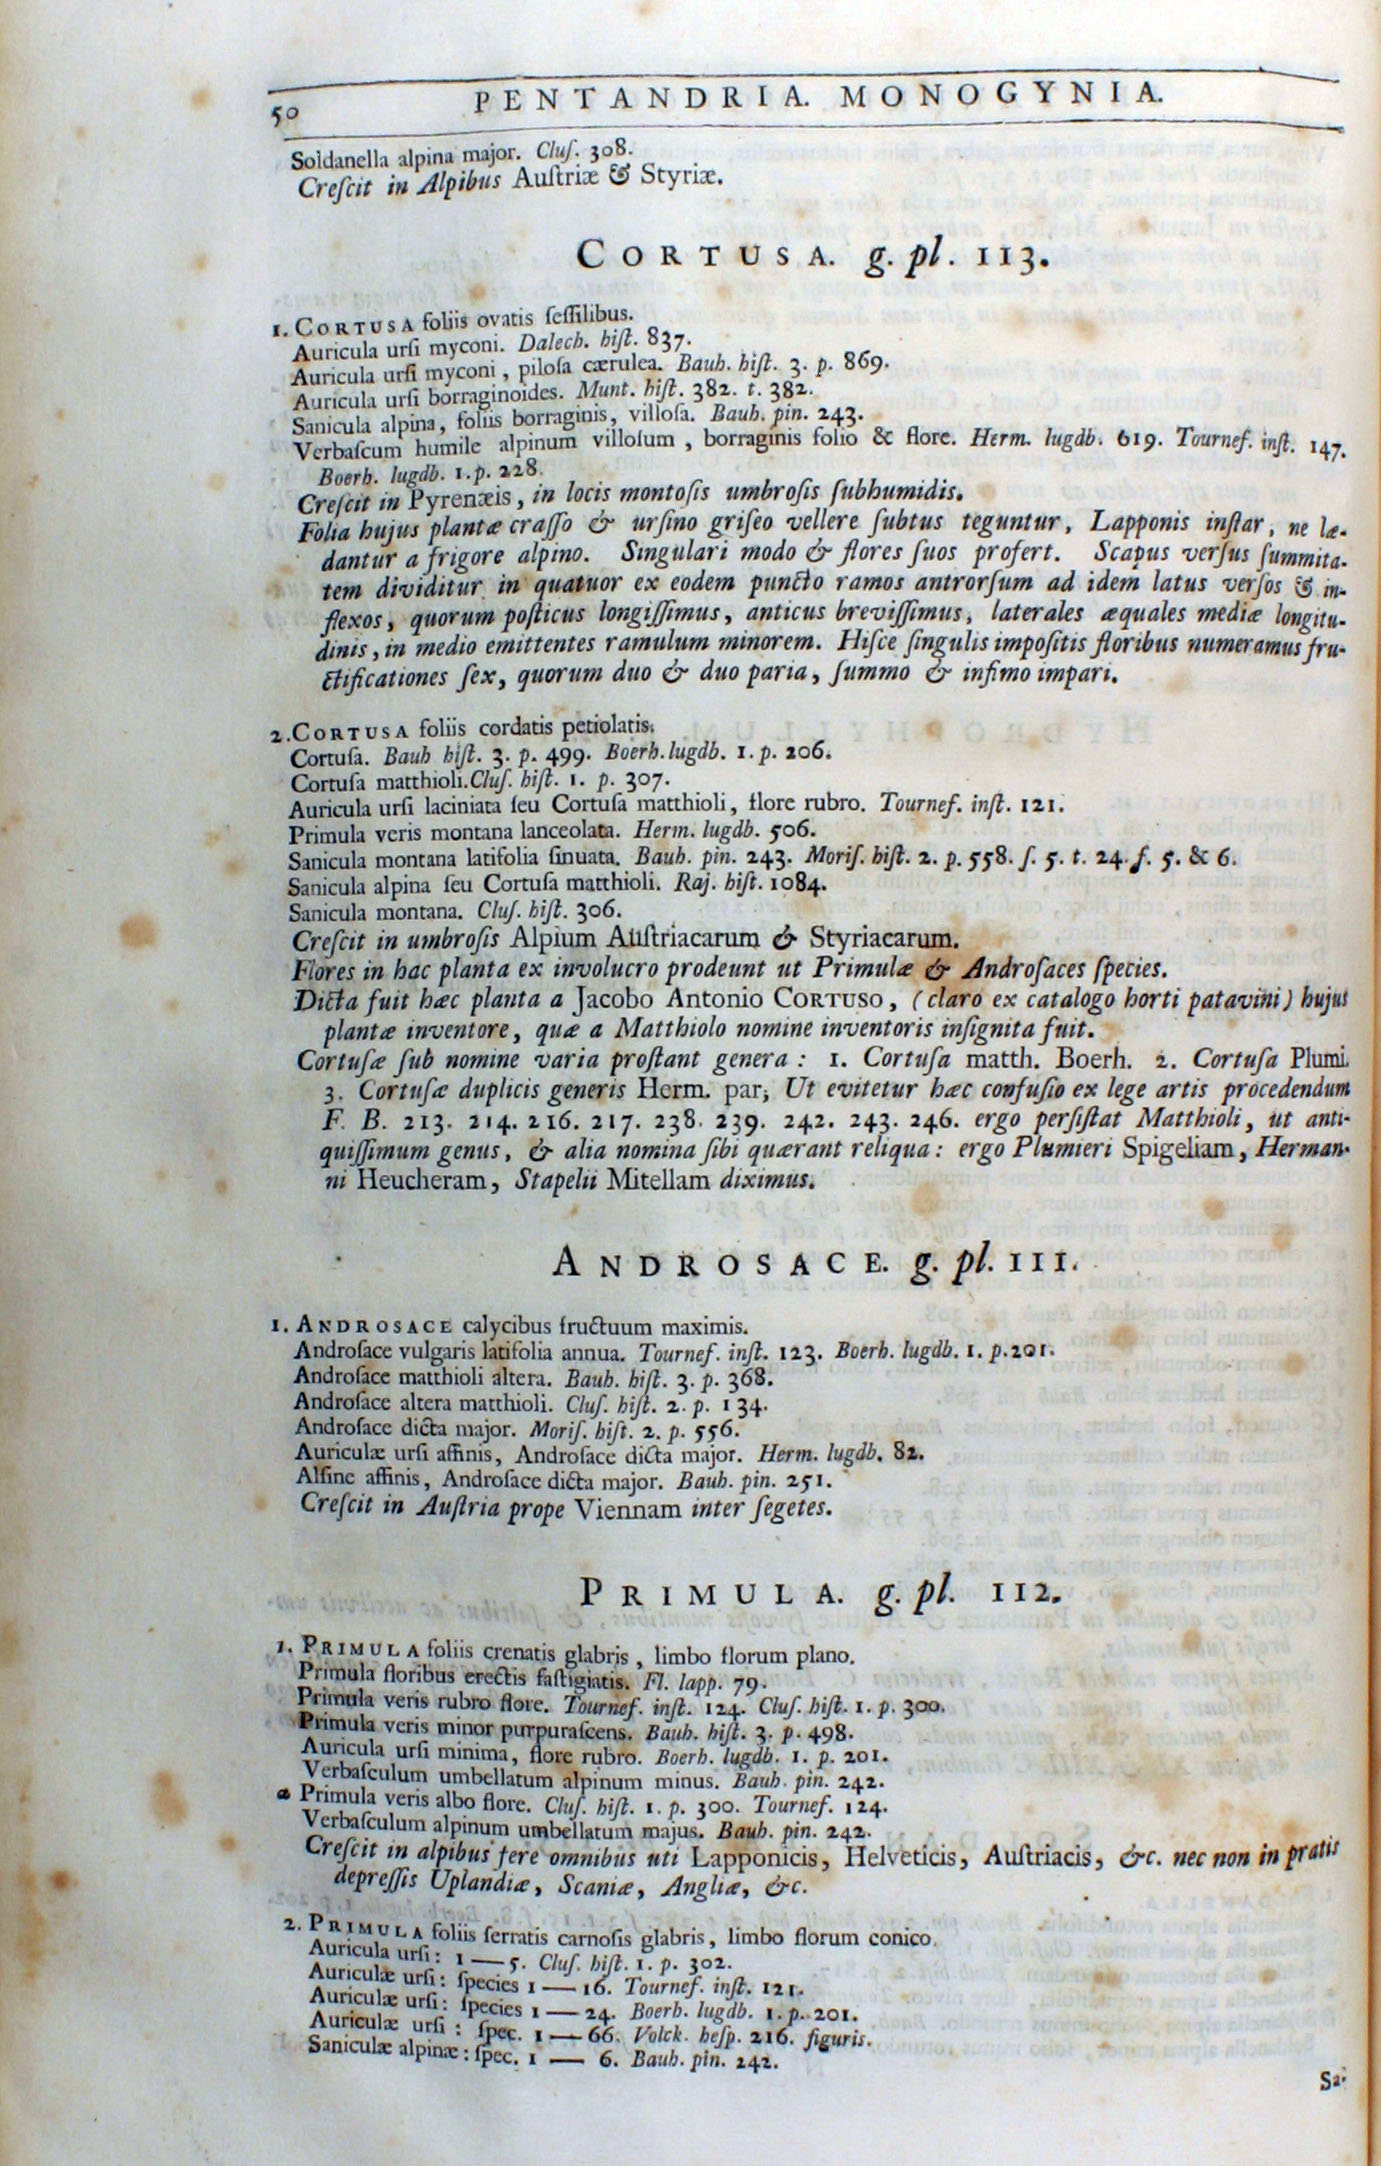 50 PENTANDRIA. MONOGYNIA.
Soldanella alpina major. Cluſ. 308.
Creſcit in Alpibus Auſtriæ & Styriæ.
CORTUSA. g. pl. 113.
1. CORTUSA foliis ovatis ſeſſilibus.
Auricula urſi myconi. Dalech. hiſt. 837.
Auricula urſi myconi, piloſa cærulea. Bauh. hiſt. 3. p. 869.
Auricula urſi borraginoides. Munt. hiſt. 382. t. 382.
Sanicula alpina, foliis borraginis, villoſa. Bauh. pin. 243.
Verbaſcum humile alpinum villoſum, borraginis folio & flore. Herm. lugdb. 619. Tournef. inſt. 147.
Boerh. lugdb. 1. p. 228.
Creſcit in Pyrenæis, in locis montoſis umbroſis ſubhumidis.
Folia hujus plantæ craſſo & urſino griſeo vellere ſubtus teguntur, Lapponis inſtar, ne læ-
dantur a frigore alpino. Singulari modo & flores ſuos profert. Scapus verſus ſummita-
tem dividitur in quatuor ex eodem puncto ramos antrorſum ad idem latus verſos & in-
flexos, quorum poſticus longiſſimus, anticus breviſſimus, laterales æquales mediæ longitu-
dinis, in medio emittentes ramulum minorem. Hiſce ſingulis impoſitis floribus numeramus fru-
ctificationes ſex, quorum duo & duo paria, ſummo & infimo impari.
2. CORTUSA foliis cordatis petiolatis.
Cortuſa. Bauh hiſt. 3. p. 499. Boerh. lugdb. 1. p. 206.
Cortuſa matthioli. Cluſ. hiſt. 1. p. 307.
Auricula urſi laciniata ſeu Cortuſa matthioli, flore rubro. Tournef. inſt. 121.
Primula veris montana lanceolata. Herm. lugdb. 506.
Sanicula montana latifolia ſinuata. Bauh. pin. 243. Moriſ. hiſt. 2. p. 558. ſ. 5. t. 24. f. 5. & 6.
Sanicula alpina ſeu Cortuſa matthioli. Raj. hiſt. 1084.
Sanicula montana. Cluſ. hiſt. 306.
Creſcit in umbroſis Alpium Auſtriacarum & Styriacarum.
Flores in hac planta ex involucro prodeunt ut Primulæ & Androſaces ſpecies.
Dicta fuit hæc planta a Jacobo Antonio CORTUSO, (claro ex catalogo horti patavini) hujus
plantæ inventore, quæ a Matthiolo nomine inventoris inſignita fuit.
Cortuſæ ſub nomine varia proſtant genera: 1. Cortuſa matth. Boerh. 2. Cortuſa Plumi.
3. Cortuſæ duplicis generis Herm. par; Ut evitetur hæc confuſio ex lege artis procedendum
F. B. 213. 214. 216. 217. 238. 239. 242. 243. 246. ergo perſiſtat Matthioli, ut anti-
quiſſimum genus, & alia nomina ſibi quærant reliqua: ergo Plumieri Spigeliam, Herman-
ni Heucheram, Stapelii Mitellam diximus.
ANDROSACE. g. pl. 111.
1. ANDROSACE calycibus fructuum maximis.
Androſace vulgaris latifolia annua. Tournef. inſt. 123. Boerh. lugdb. 1. p. 201.
Androſace matthioli altera. Bauh. hiſt. 3. p. 368.
Androſace altera matthioli. Cluſ. hiſt. 2. p. 134.
Androſace dicta major. Moriſ. hiſt. 2. p. 556.
Auriculæ urſi affinis, Androſace dicta major. Herm. lugdb. 82.
Alſine affinis, Androſace dicta major. Bauh. pin. 251.
Creſcit in Auſtria prope Viennam inter ſegetes.
PRIMULA. g. pl. 112.
1. PRIMULA foliis crenatis glabris, limbo florum plano.
Primula floribus erectis faſtigiatis. Fl. lapp. 79.
Primula veris rubro flore. Tournef. inſt. 124. Cluſ. hiſt. 1. p. 300.
Primula veris minor purpuraſcens. Bauh. hiſt. 3. p. 498.
Auricula urſi minima, flore rubro. Boerh. lugdb. 1. p. 201.
Verbaſculum umbellatum alpinum minus. Bauh. pin. 242.
α Primula veris albo flore. Cluſ. hiſt. 1. p. 300. Tournef. 124.
Verbaſculum alpinum umbellatum majus. Bauh. pin. 242.
Creſcit in alpibus fere omnibus uti Lapponicis, Helveticis, Auſtriacis, &c. nec non in pratis
depreſſis Uplandiæ, Scaniæ, Angliæ, &c.
2. PRIMULA foliis ſerratis carnoſis glabris, limbo florum conico.
Auricula urſi: 1 — 5. Cluſ. hiſt. 1. p. 302.
Auriculæ urſi: ſpecies 1 — 16. Tournef. inſt. 121.
Auriculæ urſi: ſpecies 1 — 24. Boerh. lugdb. 1. p. 201.
Auriculæ urſi: ſpec. 1 — 66. Volck. heſp. 216. figuris.
Saniculæ alpinæ: ſpec. 1 — 6. Bauh. pin. 242.
Sa-